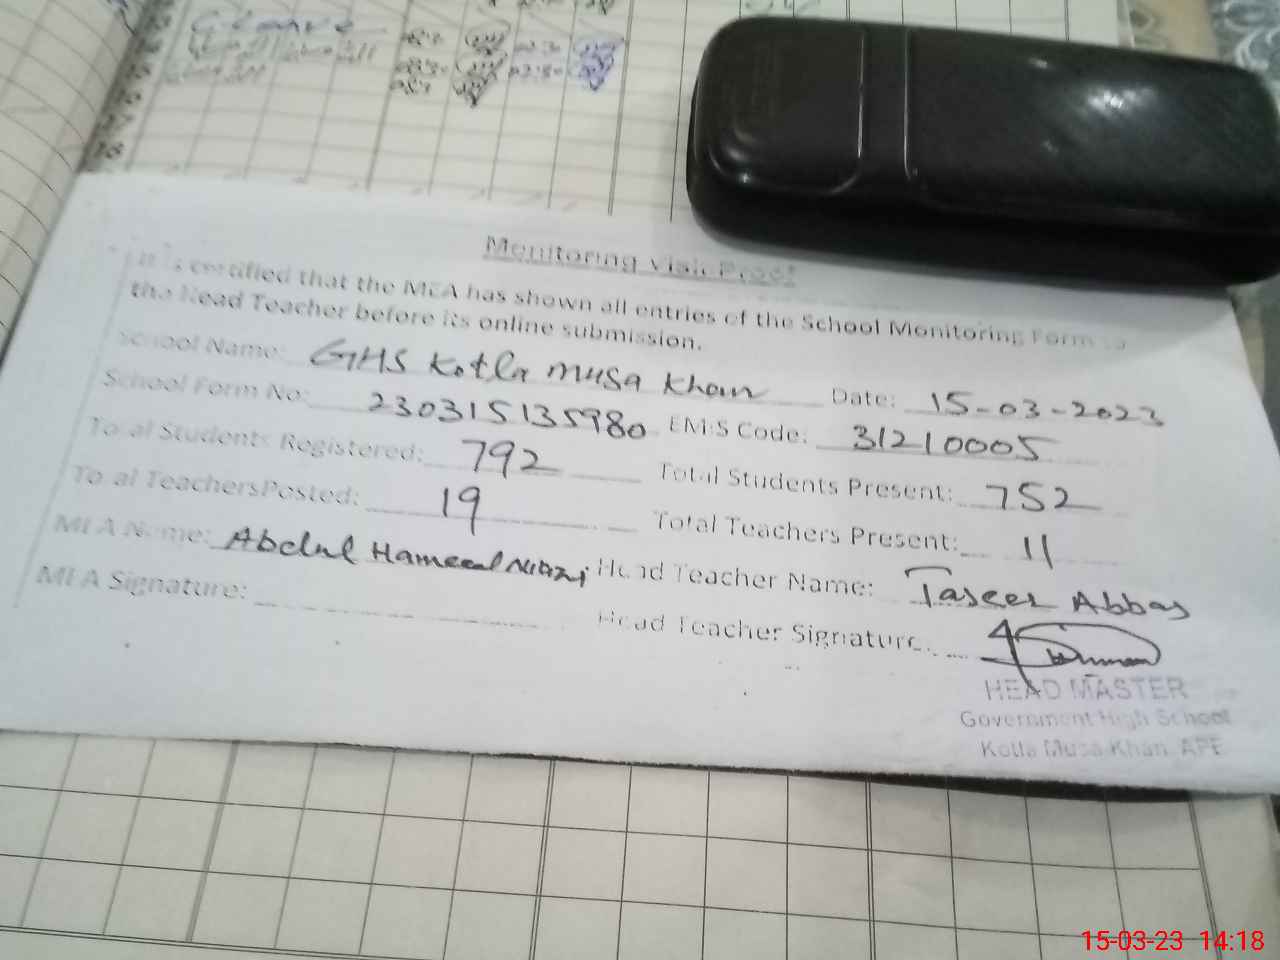 Monitoring Visit Proof
It is certified that the MEA has shown all entries of the School Monitoring Form to
the Head Teacher before its online submission.
School Name: GHS Kotla Musa Khan Date: 15-03-2023
School Form No: 230315135980 EMIS Code: 31210005
Total Students Registered: 792 Total Students Present: 752
Total TeachersPosted: 19 Total Teachers Present: 11
MEA Name: Abdul Hameed Niazi Head Teacher Name: Taseer Abbas
MEA Signature: Head Teacher Signature:
HEAD MASTER
Government High School
Kotla Musa Khan, APE
15-03-23 14:18